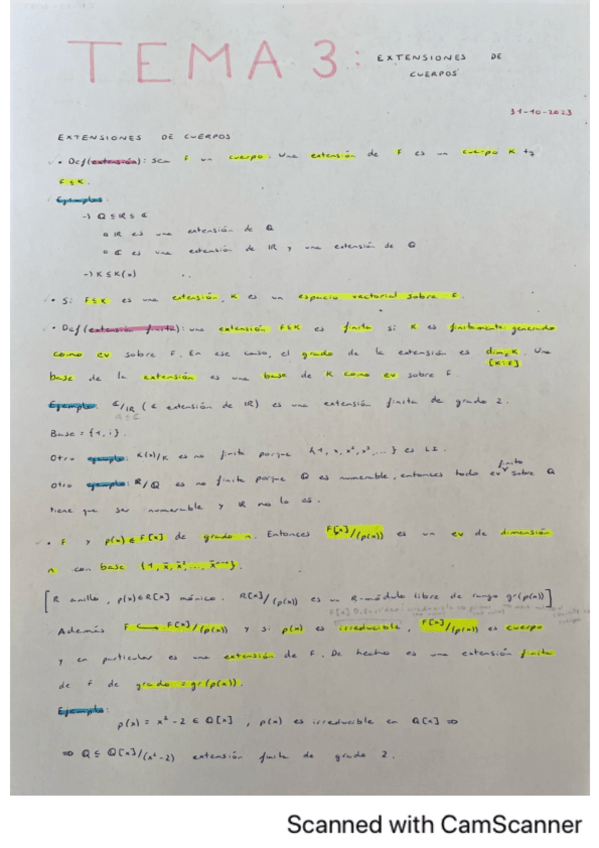 TEMA 3: EXTENSIONES DE
CUERPOS
31-10-2023
EXTENSIONES DE CUERPOS
• Def (extensión): Sea F un cuerpo. Una extensión de F es un cuerpo K tq
F ≤ K.
Ejemplos:
→ Q ≤ R ≤ C
R es una extensión de Q
C es una extensión de R y una extensión de Q
→ K ≤ K(x)
• Si F ≤ K es una extensión, K es un espacio vectorial sobre F.
• Def (extensión finita): una extensión F ≤ K es finita si K es finitamente generado
como ev sobre F. En ese caso, el grado de la extensión es dim_F K. Una
[K:F]
base de la extensión es una base de K como ev sobre F.
Ejemplo: C/R (C extensión de R) es una extensión finita de grado 2.
Base = {1, i}.
Otro ejemplo: K(x)/K es no finita porque {1, x, x², x³, ...} es LI.
Otro ejemplo: R/Q es no finita porque Q es numerable, entonces todo ev finito sobre Q
tiene que ser numerable y R no lo es.
• F y p(x) ∈ F[x] de grado n. Entonces F[x]/(p(x)) es un ev de dimensión
n con base {1, x̄, x̄², ..., x̄ⁿ⁻¹}.
[R anillo, p(x) ∈ R[x] mónico. R[x]/(p(x)) es un R-módulo libre de rango gr(p(x))]
Además F ↪ F[x]/(p(x)) y si p(x) es irreducible, F[x]/(p(x)) es cuerpo
y en particular es una extensión de F. De hecho es una extensión finita
de F de grado = gr(p(x)).
Ejemplo:
p(x) = x² - 2 ∈ Q[x], p(x) es irreducible en Q[x] ⇒
⇒ Q ≤ Q[x]/(x²-2) extensión finita de grado 2.
Scanned with CamScanner